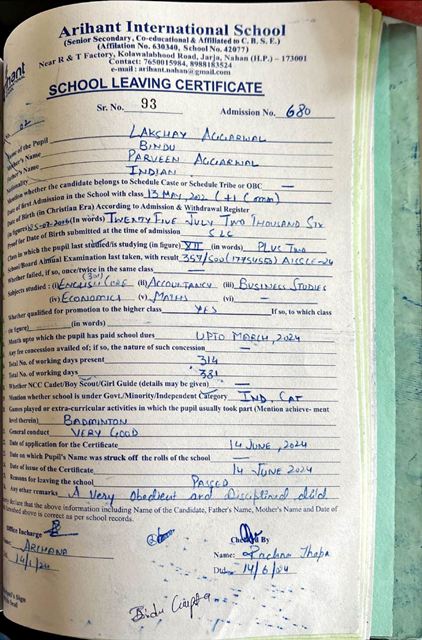 Arihant International School
(Senior Secondary, Co-educational & Affiliated to C. B. S. E.)
(Affilation No. 630340, School No. 42077)
Near R & T Factory, Kolawalabhood Road, Jarja, Nahan (H.P.) – 173001
Contact: 7650015984, 8988183524
e-mail : arihant.nahan@gmail.com
SCHOOL LEAVING CERTIFICATE
Sr. No. 93 Admission No. 680
02
Name of the Pupil LAKSHAY AGGARWAL
Mother's Name BINDU
Father's Name PARVEEN AGGARWAL
Nationality INDIAN
Mention whether the candidate belongs to Schedule Caste or Schedule Tribe or OBC —
Date of first Admission in the School with class 13 MAY, 202 (+1 Comm)
Date of Birth (in Christian Era) According to Admission & Withdrawal Register
(in figures) 25-07-2006 (In words) TWENTY FIVE JULY TWO THOUSAND SIX
Proof for Date of Birth submitted at the time of admission SLC
Class in which the pupil last studied/is studying (in figure) XII (in words) PLUS TWO
School/Board Annual Examination last taken, with result 357/500 AISSCE-24
Whether failed, if so, once/twice in the same class —
Subjects studied : (i) ENGLISH CORE (301) (ii) ACCOUNTANCY (iii) BUSINESS STUDIES
(iv) ECONOMICS (v) MATHS (vi) —
Whether qualified for promotion to the higher class YES If so, to which class
(in figure) (in words) —
Month upto which the pupil has paid school dues UPTO MARCH, 2024
Any fee concession availed of; if so, the nature of such concession —
Total No. of working days present 314
Total No. of working days 381
Whether NCC Cadet/Boy Scout/Girl Guide (details may be given) —
Mention whether school is under Govt./Minority/Independent Category IND. CAT
Games played or extra-curricular activities in which the pupil usually took part (Mention achieve- ment
level therein) BADMINTON
General conduct VERY GOOD
Date of application for the Certificate 14 JUNE, 2024
Date on which Pupil's Name was struck off the rolls of the school —
Date of issue of the Certificate 14 JUNE 2024
Reasons for leaving the school PASSED
Any other remarks A very obedient and Disciplined child
declare that the above information including Name of the Candidate, Father's Name, Mother's Name and Date of
furnished above is correct as per school records.
Office Incharge Checked By
ARCHANA Name: Rachna Thapa
14/6/24 Dtd. 14/6/24
Bindu Gupta